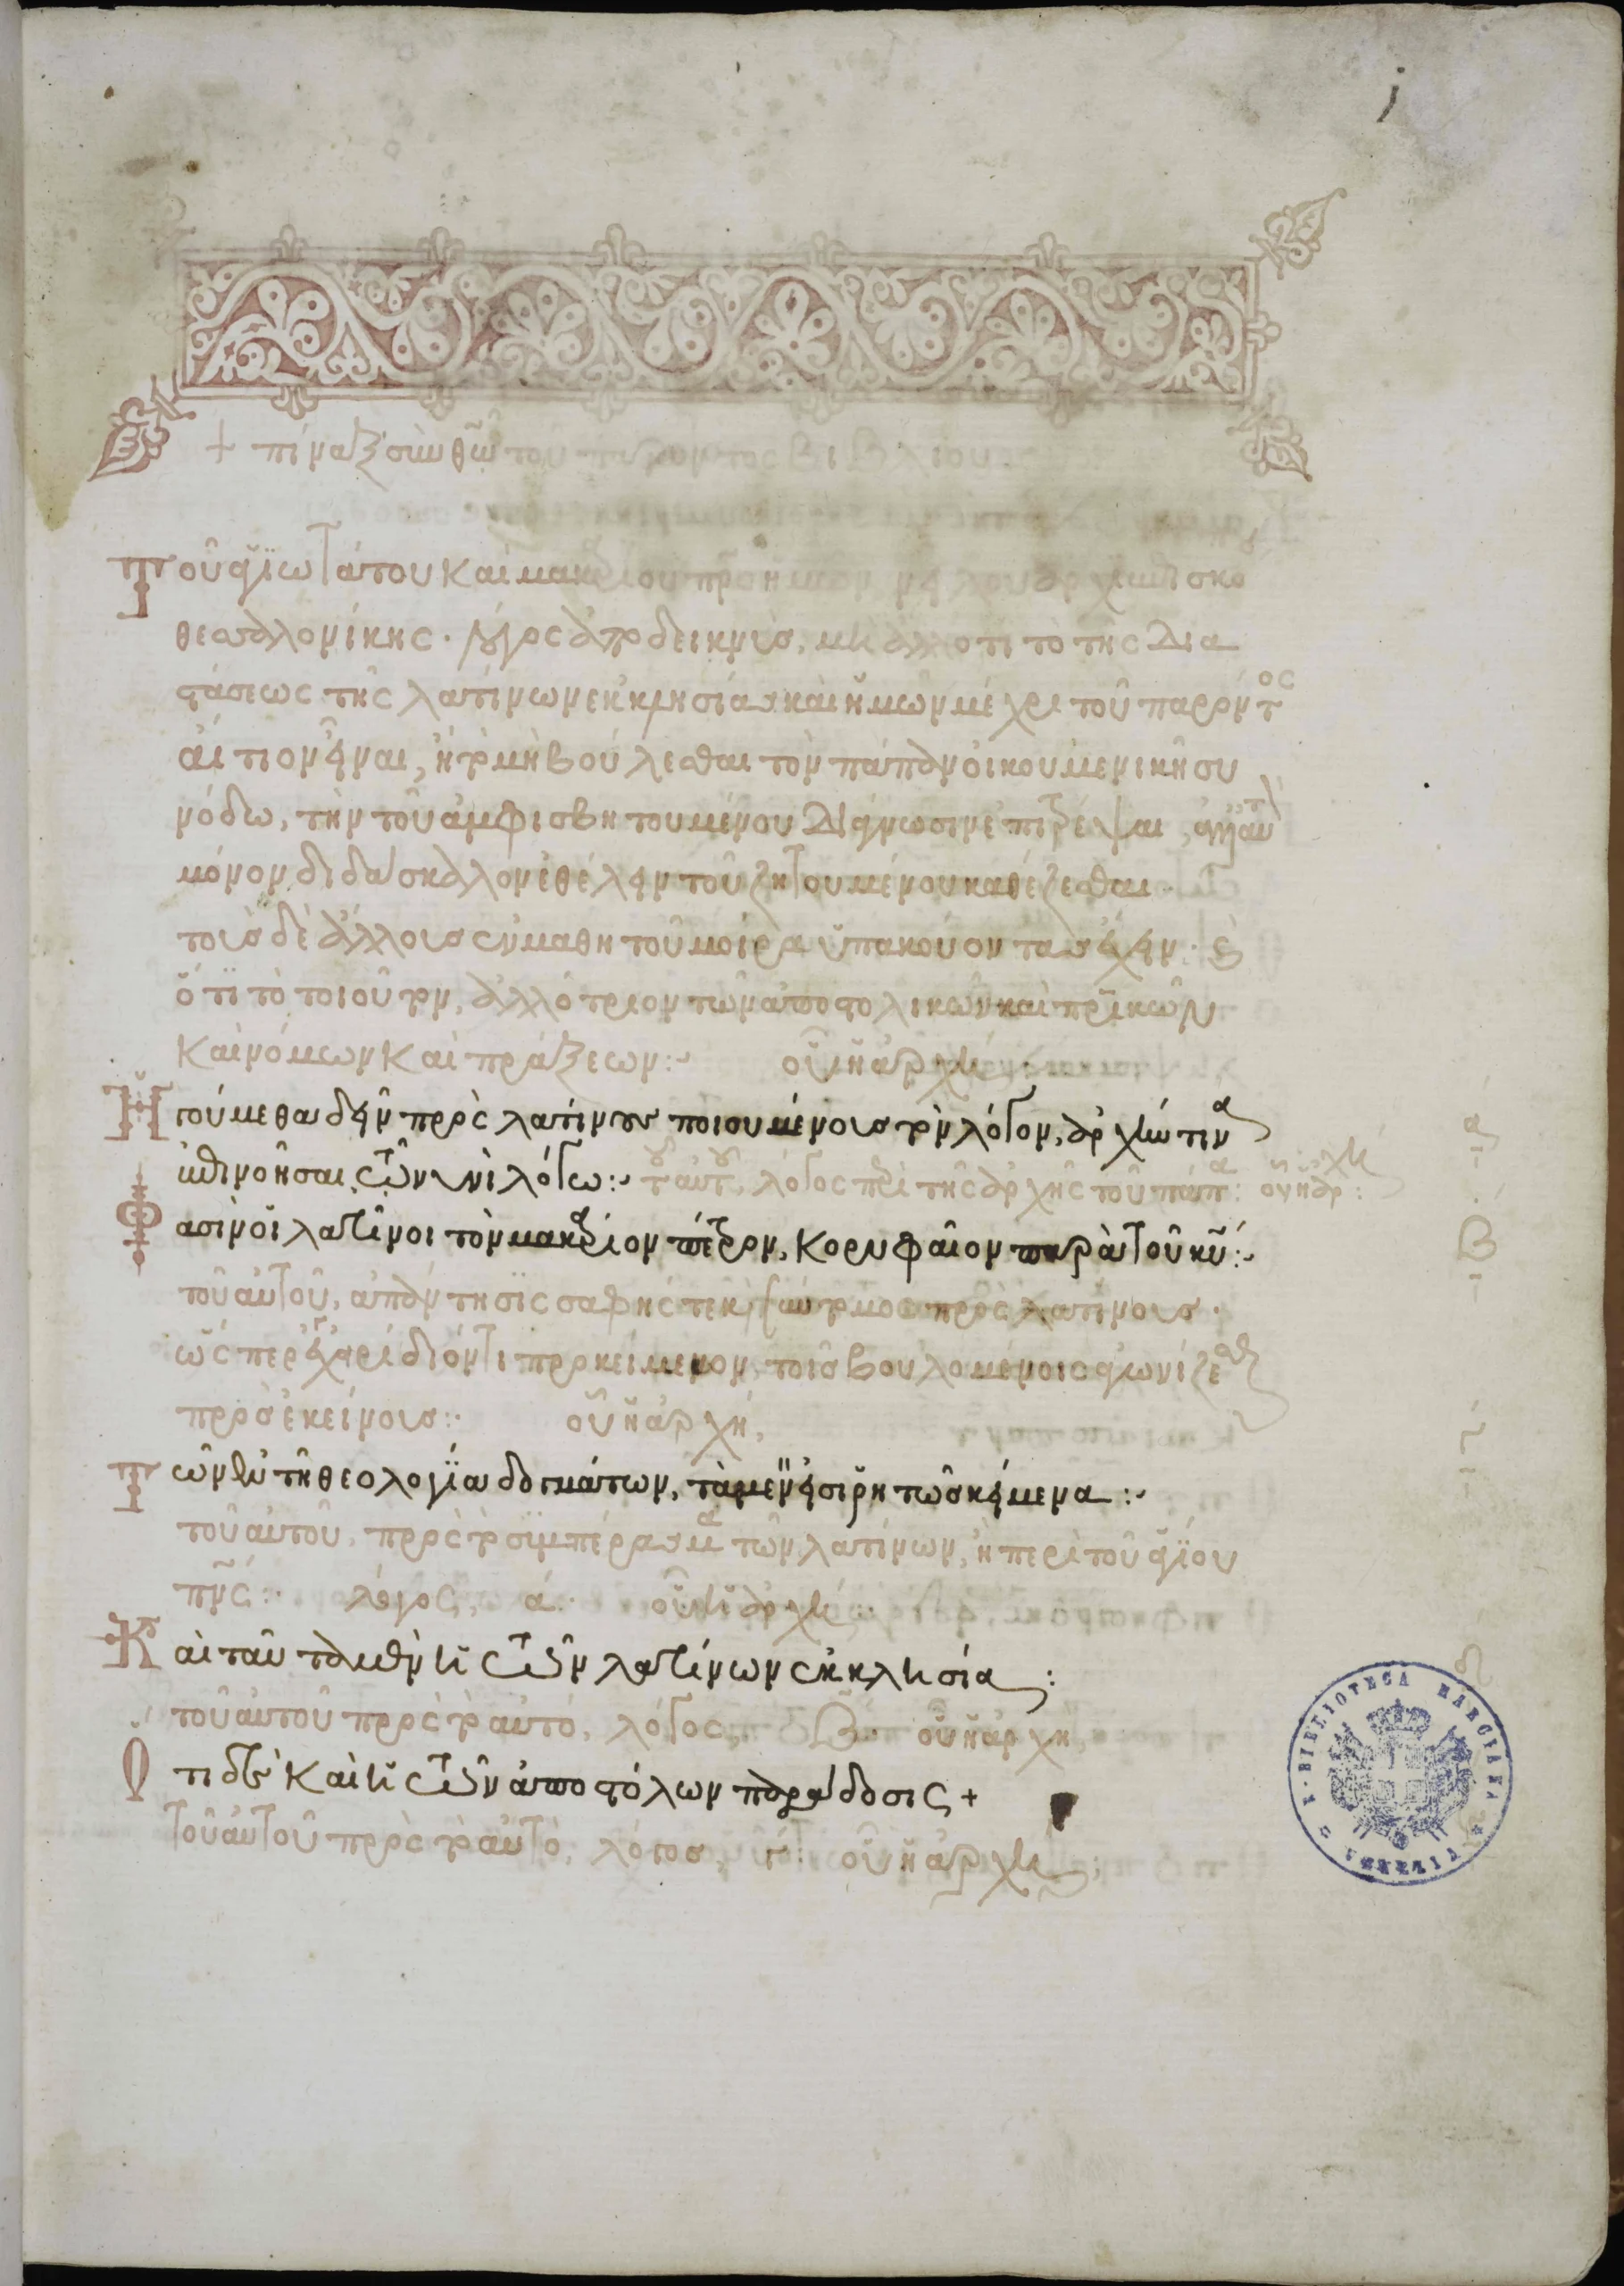 + πίναξ σὺν θεῶ τοῦ παρόντος βιβλίου
Τοῦ ἁγιωτάτου καὶ μακαρίου πρς ἡμῶν νείλου ἀρχιεπισκο
θεσσαλονίκης. λόγος ἀποδεικνύς, μὴ ἄλλο τι τὸ τῆς δια
στάσεως τῆς λατίνων ἐκκλησίας καὶ ἡμῶν μέχρι τοῦ παρόντος
αἴτιον εἶναι, ἢ τὸ μὴ βούλεσθαι τὸν πάπαν οἰκουμενικῆ συ
νόδω, τὴν τοῦ ἀμφισβητουμένου διάγνωσιν ἐπιτρέψαι, ἀλλ' αὐτ
μόνον διδάσκαλον ἐθέλειν τοῦ ζητουμένου καθέζεσθαι
τοὺς δὲ ἄλλους ἐν μαθητοῦ μοίρα ὑπακούοντας ἔχειν. καὶ
ὅτι τὸ τοιοῦτον, ἀλλότριον τῶν ἀποστολικῶν καὶ πρικῶν
καὶ νόμων καὶ πράξεων:· οὗ ἡ ἀρχή
Ἡγούμεθα δεῖν πρὸς λατίνους ποιουμένους τὸν λόγον, ἀρχήν τινα α
ἐπινοῆσαι τῶν λόγω:· τοῦ αὐτοῦ, λόγος περὶ τῆς ἀρχῆς τοῦ πάπα: οὗ ἡ ἀρχή:
Φασὶν οἱ λατῖνοι τὸν μακάριον πέτρον, κορυφαῖον παρὰ τοῦ κυ:· β
τοῦ αὐτοῦ, ἀπάντησις σαφής τε καὶ σύντομος πρὸς λατίνους.
ὥσπερ ἐγχειρίδιόν τι προκείμενον, τοῖς βουλομένοις ἀγωνίζεσθαι
πρὸς ἐκείνους:· οὗ ἡ ἀρχή, γ
Τῶν ἐν τῆ θεολογία δογμάτων, τὰ μέν εἰσι ῥητῶς κείμενα:·
τοῦ αὐτοῦ, πρὸς τὸ συμπέρασμα τῶν λατίνων, ἢ περὶ τοῦ ἁγίου
πνς:· λόγος, α. οὗ ἡ ἀρχή
Καὶ ταῦτα μὲν ἡ τῶν λατίνων ἐκκλησία: δ
τοῦ αὐτοῦ πρὸς τὸ αὐτό, λόγος, β. οὗ ἡ ἀρχή
Ὅτι δὲ καὶ ἡ τῶν ἀποστόλων παράδοσις +
τοῦ αὐτοῦ πρὸς τὸ αὐτὸ, λόγος, γ: οὗ ἡ ἀρχή
BIBLIOTECA MARCIANA
VENEZIA